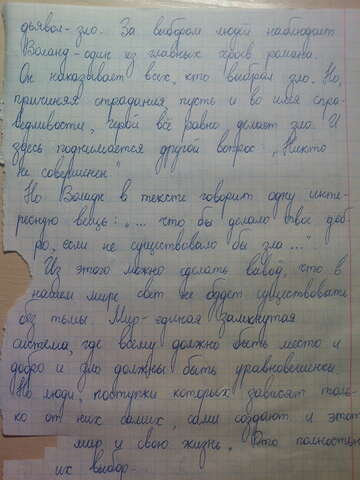 дьявол - зло. За выбором людей наблюдает
Воланд - один из главных героев романа.
Он наказывает всех, кто выбрал зло. Но,
причиняя страдания, пусть и во имя спра-
ведливости, герой всё равно делает зло. И
здесь поднимается другой вопрос: „Никто
не совершенен"
Но Воланд в тексте говорит одну инте-
ресную вещь: „... что бы делало твоё доб-
ро, если не существовало бы зло..."
Из этого можно сделать вывод, что в
нашем мире свет не будет существовать
без тьмы. Мир - единая замкнутая
система, где всему должно быть место и
добро и зло должны быть уравновешенны.
Но люди, поступки которых зависят толь-
ко от них самих, сами создают и этот
мир и свою жизнь. Это полностью
их выбор.